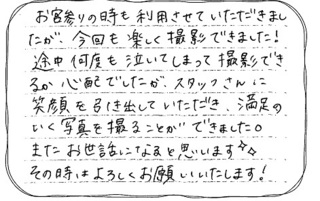 お宮参りの時も利用させていただきまし
たが、今回も楽しく撮影できました!
途中何度も泣いてしまって撮影でき
るか心配でしたが、スタッフさんに
笑顔を引き出していただき、満足の
いく写真を撮ることができました。
またお世話になると思います✧✧
その時はよろしくお願いいたします!